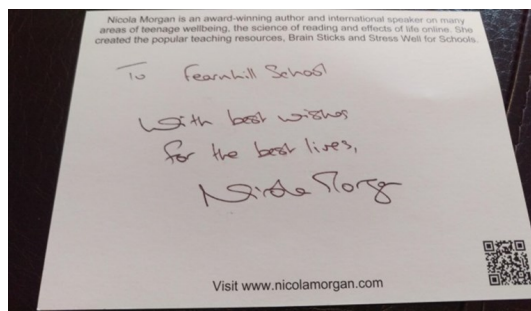 Nicola Morgan is an award-winning author and international speaker on many
areas of teenage wellbeing, the science of reading and effects of life online. She
created the popular teaching resources, Brain Sticks and Stress Well for Schools.
To Fearnhill School
With best wishes
for the best lives,
Nicola Morgan
Visit www.nicolamorgan.com